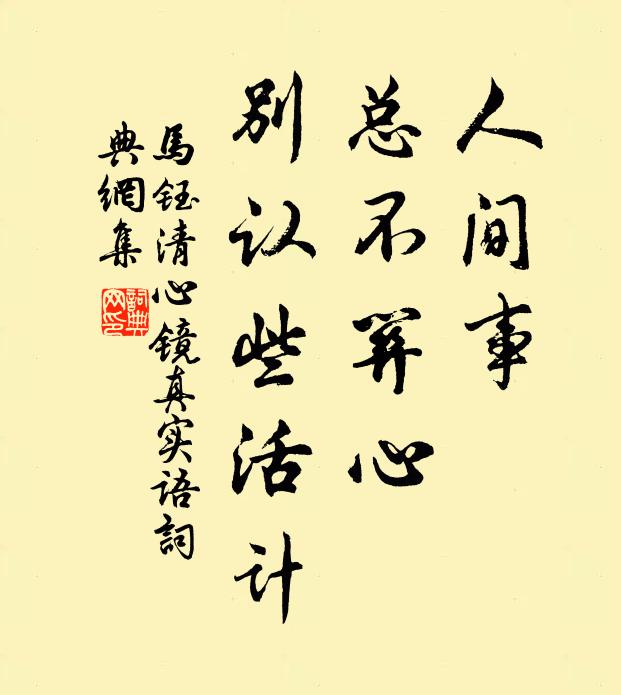 人间事
总不关心
别认些活计
馬钰清心镜真实语詞
典網集
詞典
网印